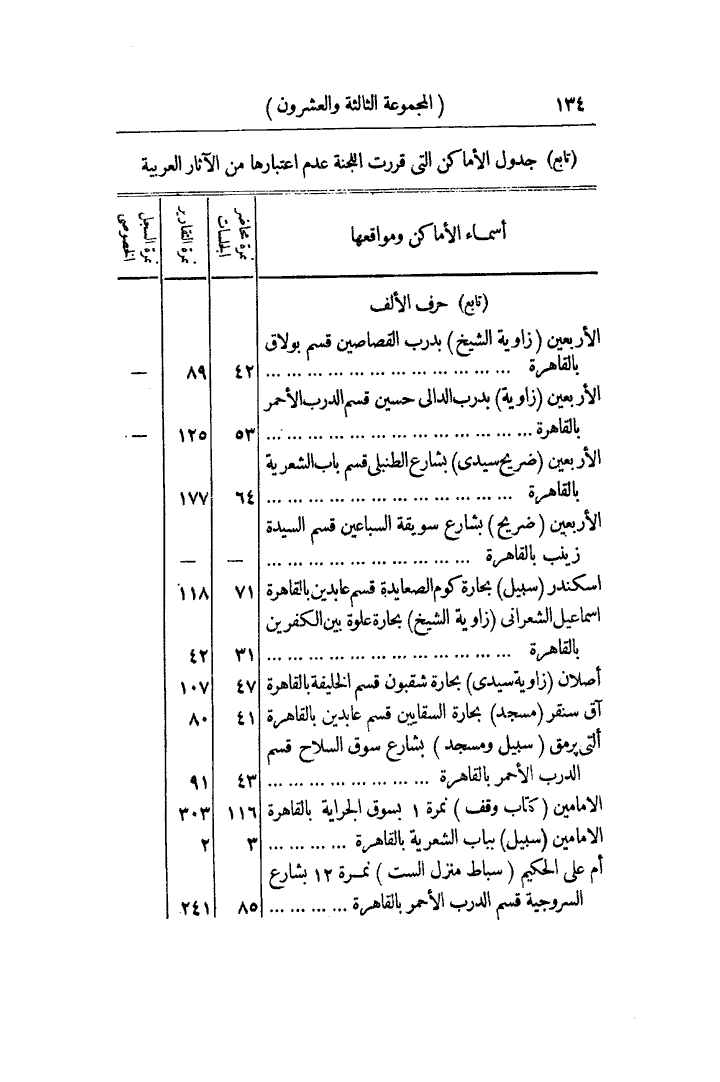 ١٣٤ ( المجموعة الثالثة والعشرون )
(تابع) جدول الأماكن التى قررت اللجنة عدم اعتبارها من الآثار العربية
أسماء الأماكن ومواقعها نمرة محاضر الجلسات نمرة التقارير نمرة السجل الخصوصى
(تابع) حرف الألف
الأربعين (زاوية الشيخ) بدرب القصاصين قسم بولاق
بالقاهرة ... ... ... ... ... ... ... ... ... ... ... ... ٤٢ ٨٩ —
الأربعين (زاوية) بدرب الدالى حسين قسم الدرب الأحمر
بالقاهرة ... ... ... ... ... ... ... ... ... ... ... ... ... ٥٣ ١٢٥ —
الأربعين (ضريح سيدى) بشارع الطنبلى قسم باب الشعرية
بالقاهرة ... ... ... ... ... ... ... ... ... ... ... ... ٦٤ ١٧٧
الأربعين (ضريح) بشارع سويقة السباعين قسم السيدة
زينب بالقاهرة ... ... ... ... ... ... ... ... ... ... — —
اسكندر (سبيل) بحارة كوم الصعايدة قسم عابدين بالقاهرة ٧١ ١١٨
اسماعيل الشعرانى (زاوية الشيخ) بحارة علوة بين الكفرين
بالقاهرة ... ... ... ... ... ... ... ... ... ... ... ... ٣١ ٤٢
أصلان (زاوية سيدى) بحارة شقبون قسم الخليفة بالقاهرة ٤٧ ١٠٧
آق سنقر (مسجد) بحارة السقايين قسم عابدين بالقاهرة ٤١ ٨٠
ألتى برمق ( سبيل ومسجد ) بشارع سوق السلاح قسم
الدرب الأحمر بالقاهرة ... ... ... ... ... ... ... ... ٤٣ ٩١
الامامين ( كتاب وقف ) نمرة ١ بسوق الجراية بالقاهرة ١١٦ ٣٠٣
الامامين (سبيل) بباب الشعرية بالقاهرة ... ... ... ... ٣ ٢
أم على الحكيم ( سباط منزل الست ) نمرة ١٢ بشارع
السروجية قسم الدرب الأحمر بالقاهرة ... ... ... ... ٨٥ ٢٤١